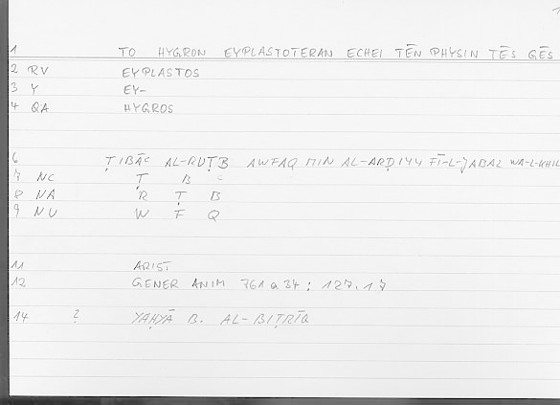 1 TO HYGRON EYPLASTOTERAN ECHEI TĒN PHYSIN TĒS GĒS
2 RV EYPLASTOS
3 Y EY-
4 QA HYGROS
6 ṬIBĀC AL-RUṬB AWFAQ MIN AL-ARḌIYY FĪ-L-JABAL WA-L-KHIL
7 NC Ṭ B C
8 NA R Ṭ B
9 NU W F Q
11 ARIST.
12 GENER ANIM 761 a 34 : 127.17
14 ? YAḤYĀ B. AL-BIṬRĪQ